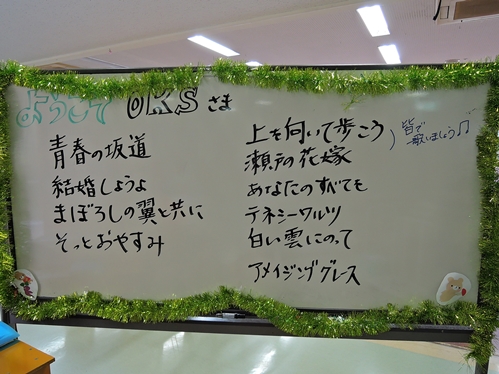 ようこそ OKSさま
青春の坂道
結婚しようよ
まぼろしの翼と共に
そっとおやすみ
上を向いて歩こう
瀬戸の花嫁
皆で歌いましょう♫
あなたのすべてを
テネシーワルツ
白い雲にのって
アメイジンググレース